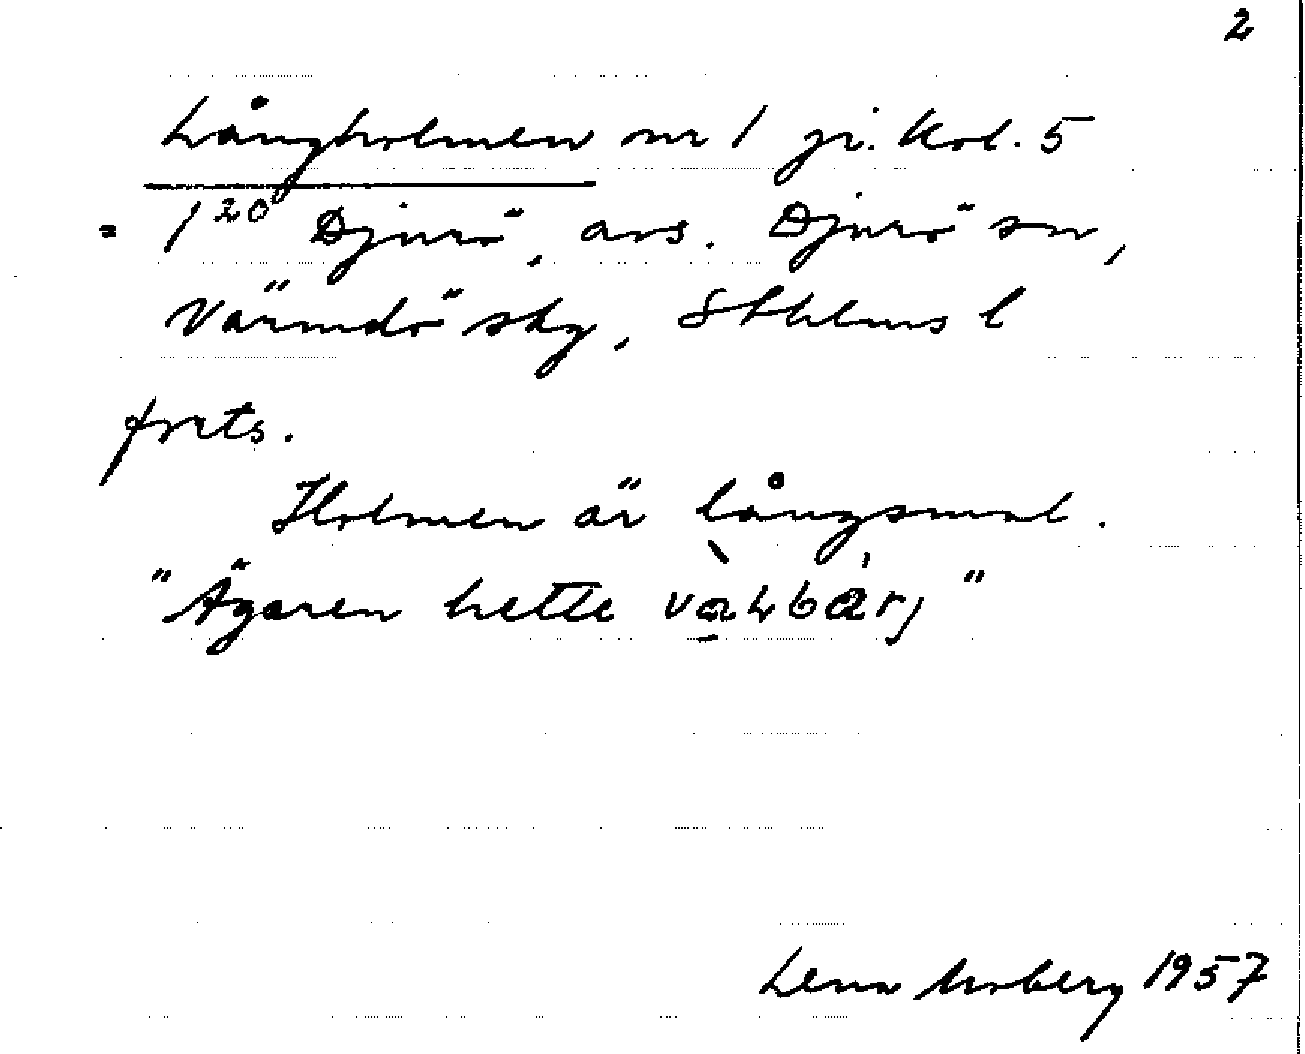 2
Långholmen nr 1 gi. kol. 5
= 1²⁰ Djurö, avs. Djurö sn,
Värmdö skg, Sthlms l
forts.
Holmen är långsmal.
"Ägaren hette
Lena Moberg 1957